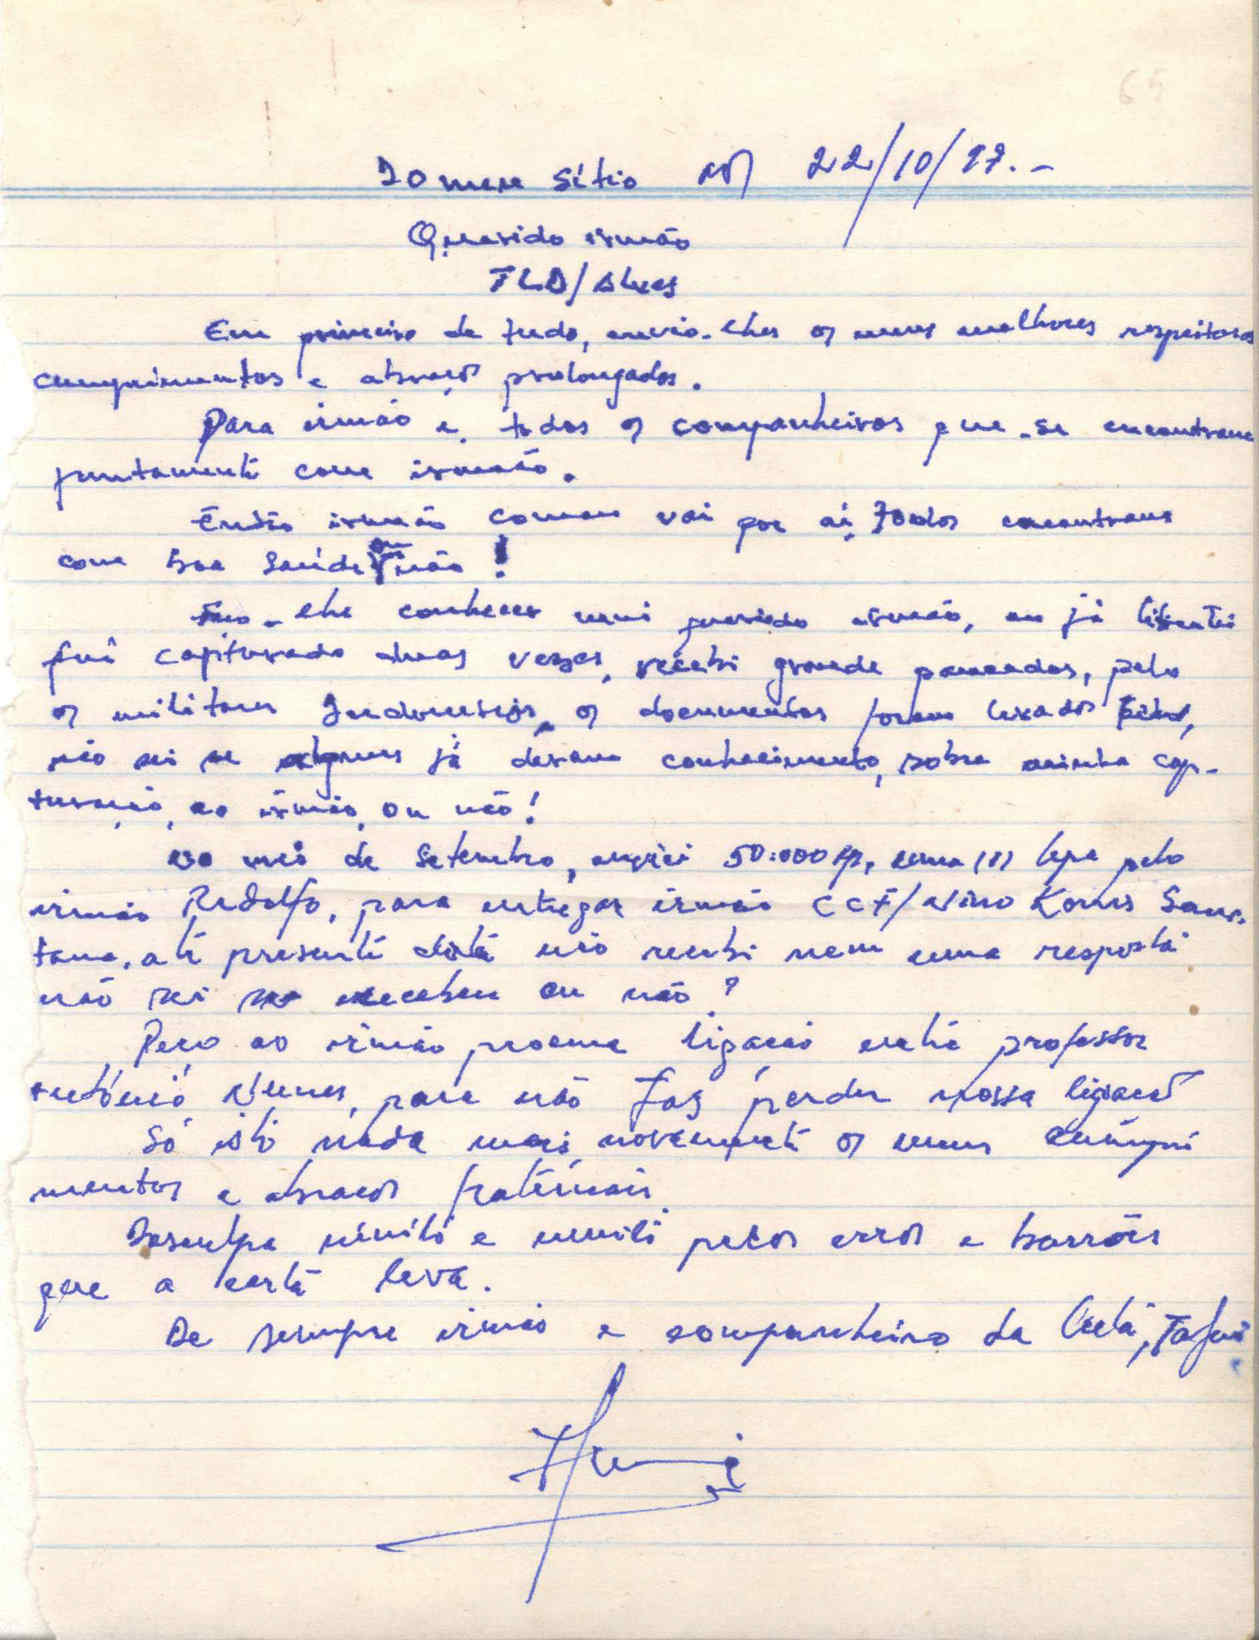 Sítio aos 22/10/97.-
Querido irmão
TLD/Alves
Em primeiro de tudo, envio-lhes os meus melhores respeitosos
cumprimentos e abraços prolongados.
Para irmão e todos os companheiros que se encontram
juntamente com irmão.
Então irmão como vai por aí, todos encontram
com boa saúde ou não!
Faço-lhe conhecer meu querido irmão, eu já
fui capturado duas vezes, recebi grande pancadas, pelo
os militares Indonésios, os documentos foram levados
não sei se alguns já deram conhecimento, sobre minha cap-
turação, ao irmão, ou não!
no mês de Setembro, enviei 50.000 rp, uma (1) pelo
irmão Rodolfo, para entregar irmão CCF/Nino Konis San-
tana, até presente data não recebi nem uma resposta
não sei se recebeu ou não?
Peço ao irmão procura ligação entre professor
António Nunes, para não faz perder nossa ligação
Só isto nada mais novamente os meus cumpri
mentos e abraços fraternais
Desculpa muito e muito pelos erros e borrões
que a carta leva.
De sempre irmão e companheiro da luta,